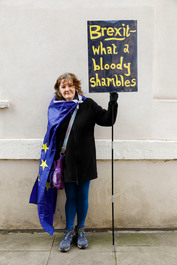 Brexit-
what a
bloody
shambles